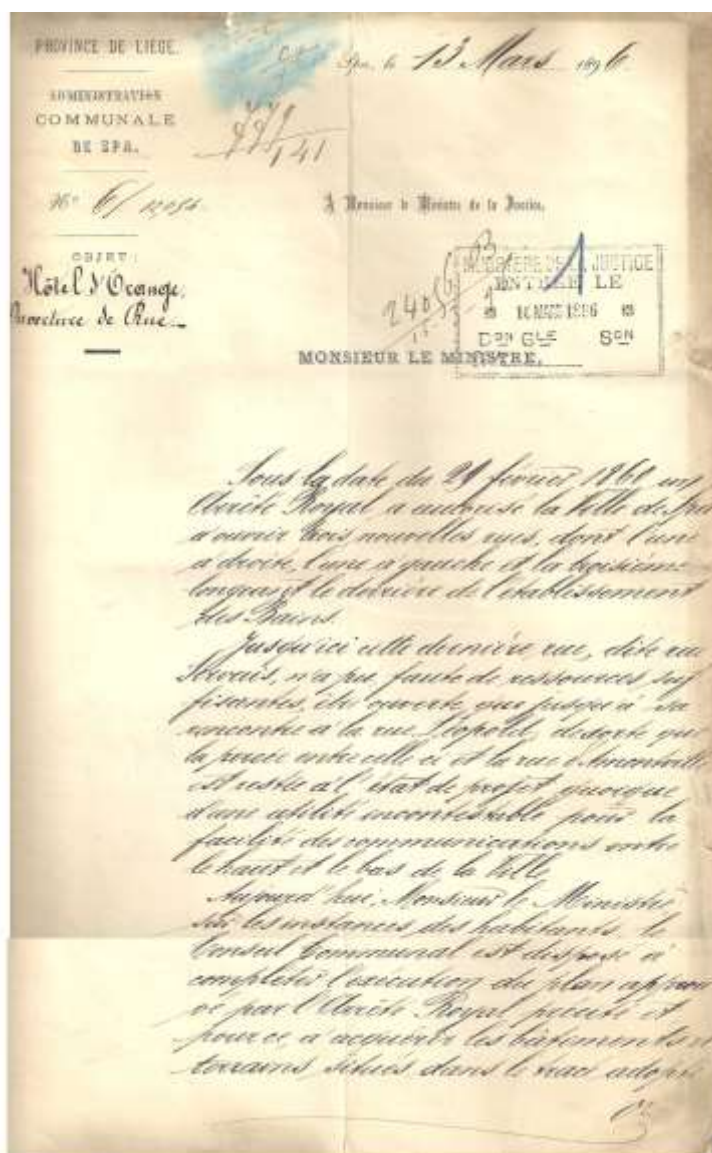 PROVINCE DE LIÉGE.
Spa, le 13 Mars 1896
ADMINISTRATION
COMMUNALE
DE SPA.
779
141
N° 6/
A Monsieur le Ministre de la Justice.
OBJET :
Hôtel d'Orange,
Ouverture de Rue.
MINISTERE DE LA JUSTICE
ENTRÉE LE
1
DON GLE SON
MONSIEUR LE MINISTRE,
Sous la date du 29 février 1860 un
Arrêté Royal a autorisé la Ville de Spa
d'ouvrir trois nouvelles rues, dont l'une
à droite, l'une à gauche et la troisième
longeant le derrière de l'établissement
des Bains.
Jusqu'ici cette dernière rue, dite rue
Servais, n'a pu, faute de ressources suf
fisantes, être ouverte que jusqu'à sa
rencontre à la rue Léopold, desorte que
la percée entre celle ci et la rue d'Amontville
est restée à l'état de projet quoique
d'une utilité incontestable pour la
facilité des communications entre
le haut et le bas de la Ville.
Aujourd'hui, Monsieur le Ministre
sur les instances des habitants, le
Conseil Communal est disposé à
compléter l'exécution du plan approu
vé par l'Arrêté Royal précité et
pour ce, d'acquérir les bâtiments et
terrains, situés dans le tracé adopté